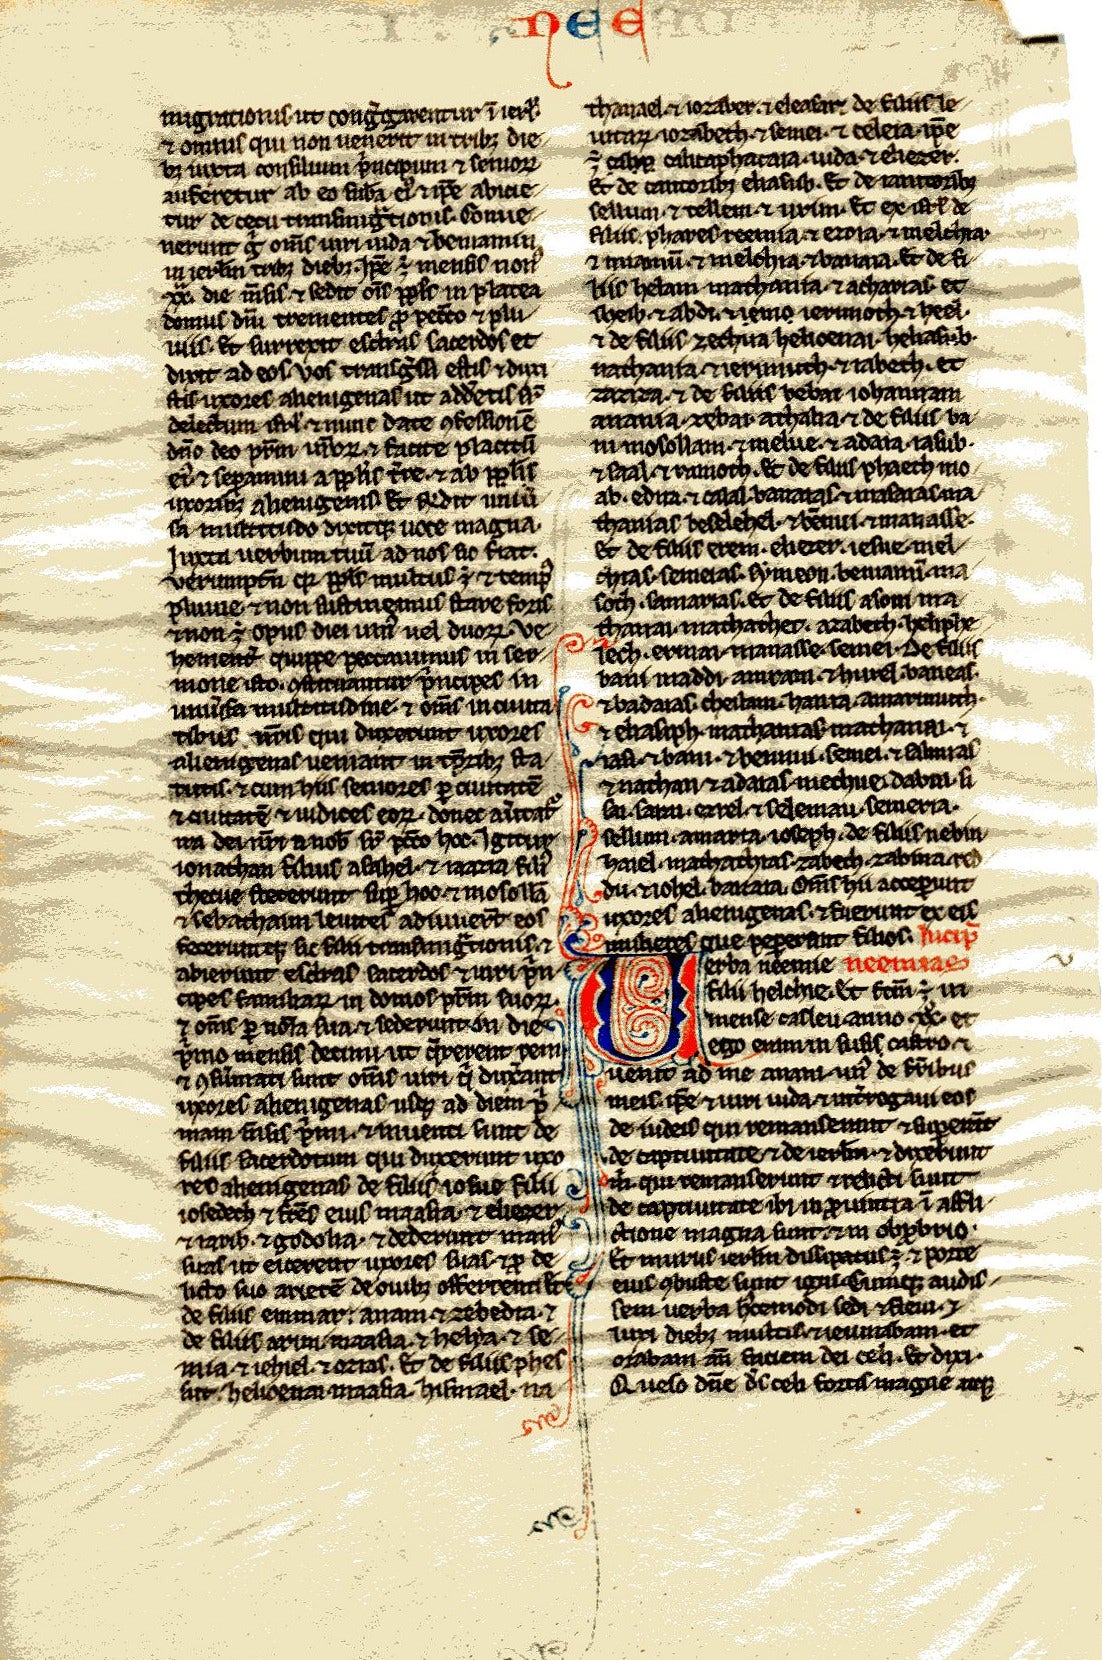 NEE
migrationis ut cong̃garentur ĩ ierlm̃
⁊ omnis qui non venerit in tribꝫ die
bꝫ iuxta consilium p̃ncipum ⁊ senioꝝ
auferetur ab eo
tur de cetu transmig̃tionis. Conue
nerunt g̃ om̃s uiri iuda ⁊ beniamin
in ierlm̃ tribꝫ diebꝫ. ip̃e ẽ mensis non
xx. die m̃sis ⁊ sedit om̃s ppl̃s in platea
domus dñi trementes ꝓ pecc̃o ⁊ plu
uiis. Et surrexit esdras sacerdos et
dixit ad eos. Vos transg̃ssi estis ⁊ duxi
stis uxores alienigenas ut adderetis
delictum isrl̃. ⁊ nunc date ꝯfessionẽ
dño deo pr̃m ur̃oꝝ ⁊ facite placitũ
ei᷒ ⁊ separamini a ppl̃is t̃re. ⁊ ab
uxoribꝫ alienigenis. Et r̃ndit uniũ
sa multitudo dixitqꝫ uoce magna.
Iuxta uerbum tuũ ad nos sic fiat.
Verumptñ qꝛ ppl̃s multus ẽ ⁊ temp᷒
pluuie. ⁊ non sustinemus stare foris
⁊ non ẽ opus diei uni᷒ uel duoꝝ. Ve
hement̃ quippe peccauimus in ser
mone isto. ꝯstituantur p̃ncipes in
uniũsa multitudine. ⁊ om̃s in ciuita
tibus nr̃is qui duxerunt uxores
alienigenas ueniant in tp̃ribꝫ sta
tutis. ⁊ cum hiis seniores ꝑ ciuitatẽ
⁊ ciuitatẽ ⁊ iudices eoꝝ. donec
ira dei nr̃i a nob̃ sr̃ pcc̃o hoc. Igitur
ionathan filius asahel. ⁊ iaazia fili᷒
thecue steterunt suꝑ hoc. ⁊ mosollã
⁊ sebathaim leuites adiuuer̃t eos
feceruntqꝫ sic filii transmig̃tionis. ⁊
abierunt esdras sacerdos ⁊ uiri p̃n
cipes familiaꝝ in domos pr̃m suoꝝ
⁊ om̃s ꝑ noĩa sua. ⁊ sederunt in die
p̃mo mensis decimi ut q̃rerent rem
⁊ ꝯsũmati sunt om̃s uiri q̃ duxant
uxores alienigenas usqꝫ ad diem p̃
mam m̃sis p̃mi. ⁊ inuenti sunt de
filiis sacerdotum qui duxerunt uxo
res alienigenas de filiis iosue filii
iosedech ⁊ fr̃es eius maasia. ⁊ eliezer
⁊ iarib. ⁊ godolia. ⁊ dederunt man᷒
suas ut eicerent uxores suas. ⁊ ꝓ de
licto suo arietẽ de ouibꝫ
de filiis emmar. anani ⁊ zebedia. ⁊
de filiis arim. maasia. ⁊ helya. ⁊ se
mia ⁊ iehiel. ⁊ ozias. Et de filiis phes
sur. helioenai maasia. hismael. na
thanael. ⁊ iozaber. ⁊ eleasar. de filiis le
uitaꝝ iozabeth. ⁊ semei. ⁊ celeia. ip̃e
ẽ calitaphataia. iuda ⁊ eliezer.
Et de cantoribꝫ eliasub. Et de ianitoribꝫ
sellum. ⁊ tellem ⁊ urim. Et ex isrl̃ de
filiis pharos remia. ⁊ ezia. ⁊ melchia
⁊ miamin. ⁊ melchia. ⁊ banaia. Et de fi
liis helam mathania. ⁊ acharias et
⁊ abdi. ⁊ ierimoth. ⁊ heel.
⁊ de filiis zechua helioenai. heliasub.
nathania. ⁊ ierimuth. ⁊ iabeth. et
zaziza. ⁊ de filiis bebai iohannam
anania. zebai athalia ⁊ de filiis ba
ni mosollam. ⁊ melue. ⁊ adaia. iasub.
⁊ saal. ⁊ ramoth. Et de filiis phaeth mo
ab. edna. ⁊ calal. banaias. ⁊ masaias. ma
thanias beselehel. ⁊ bẽnui. ⁊ manasse.
Et de filiis erem. eliezer. iesue. mel
chias. semeias. symeon. beniamĩ. ma
loch. samarias. Et de filiis asom ma
thanai. mathathet. zabeth. heliphe
lech. ermai. manasse. semei. De filiis
bani maddi. amram. ⁊ huel. baneas.
⁊ badaias. cheilam. hania. marimuth.
⁊ eliasiph. mathanias. mathanai. ⁊
iasi. ⁊ bani. ⁊ bennui. semei. ⁊ salmias
⁊ nathan ⁊ adaias. mechne dabai. si
sai. sarai. ezrel. ⁊ selemau. semeria.
sellum. amaria. ioseph. de filiis nebui
haiel. mathathias. zabeth. zabina. ied
du. ⁊ iohel. banaia. Om̃s hii acceꝑunt
uxores alienigenas. ⁊ fuerunt ex eis
mulieres que peꝑerant filios. Incip̃
Verba neemie neemias
filii helchie. Et fcm̃ ẽ in
mense casleu anno xx. et
ego eram in susis castro. ⁊
uenit ad me anani un᷒ de fr̃ibus
meis. ip̃e ⁊ uiri iuda. ⁊ int̃rogaui eos
de iudeis qui remanserunt ⁊
de captiuitate ⁊ de ierlm̃. ⁊ dixerunt
m̃ qui remanserunt ⁊ relicti sunt
de captiuitate ibi in ꝓuintia ĩ affli
ctione magna sunt ⁊ in obp̃brio.
Et murus ierlm̃ dissipatus ẽ. ⁊ porte
eius ꝯbuste sunt igni. Cumqꝫ audis
sem uerba h̃cemodi sedi ⁊ fleui. ⁊
luxi diebꝫ multis. ⁊ ieiunabam. et
orabam añ faciem dei celi. Et dixi.
Queso dñe ds̃ celi fortis magne atqꝫ